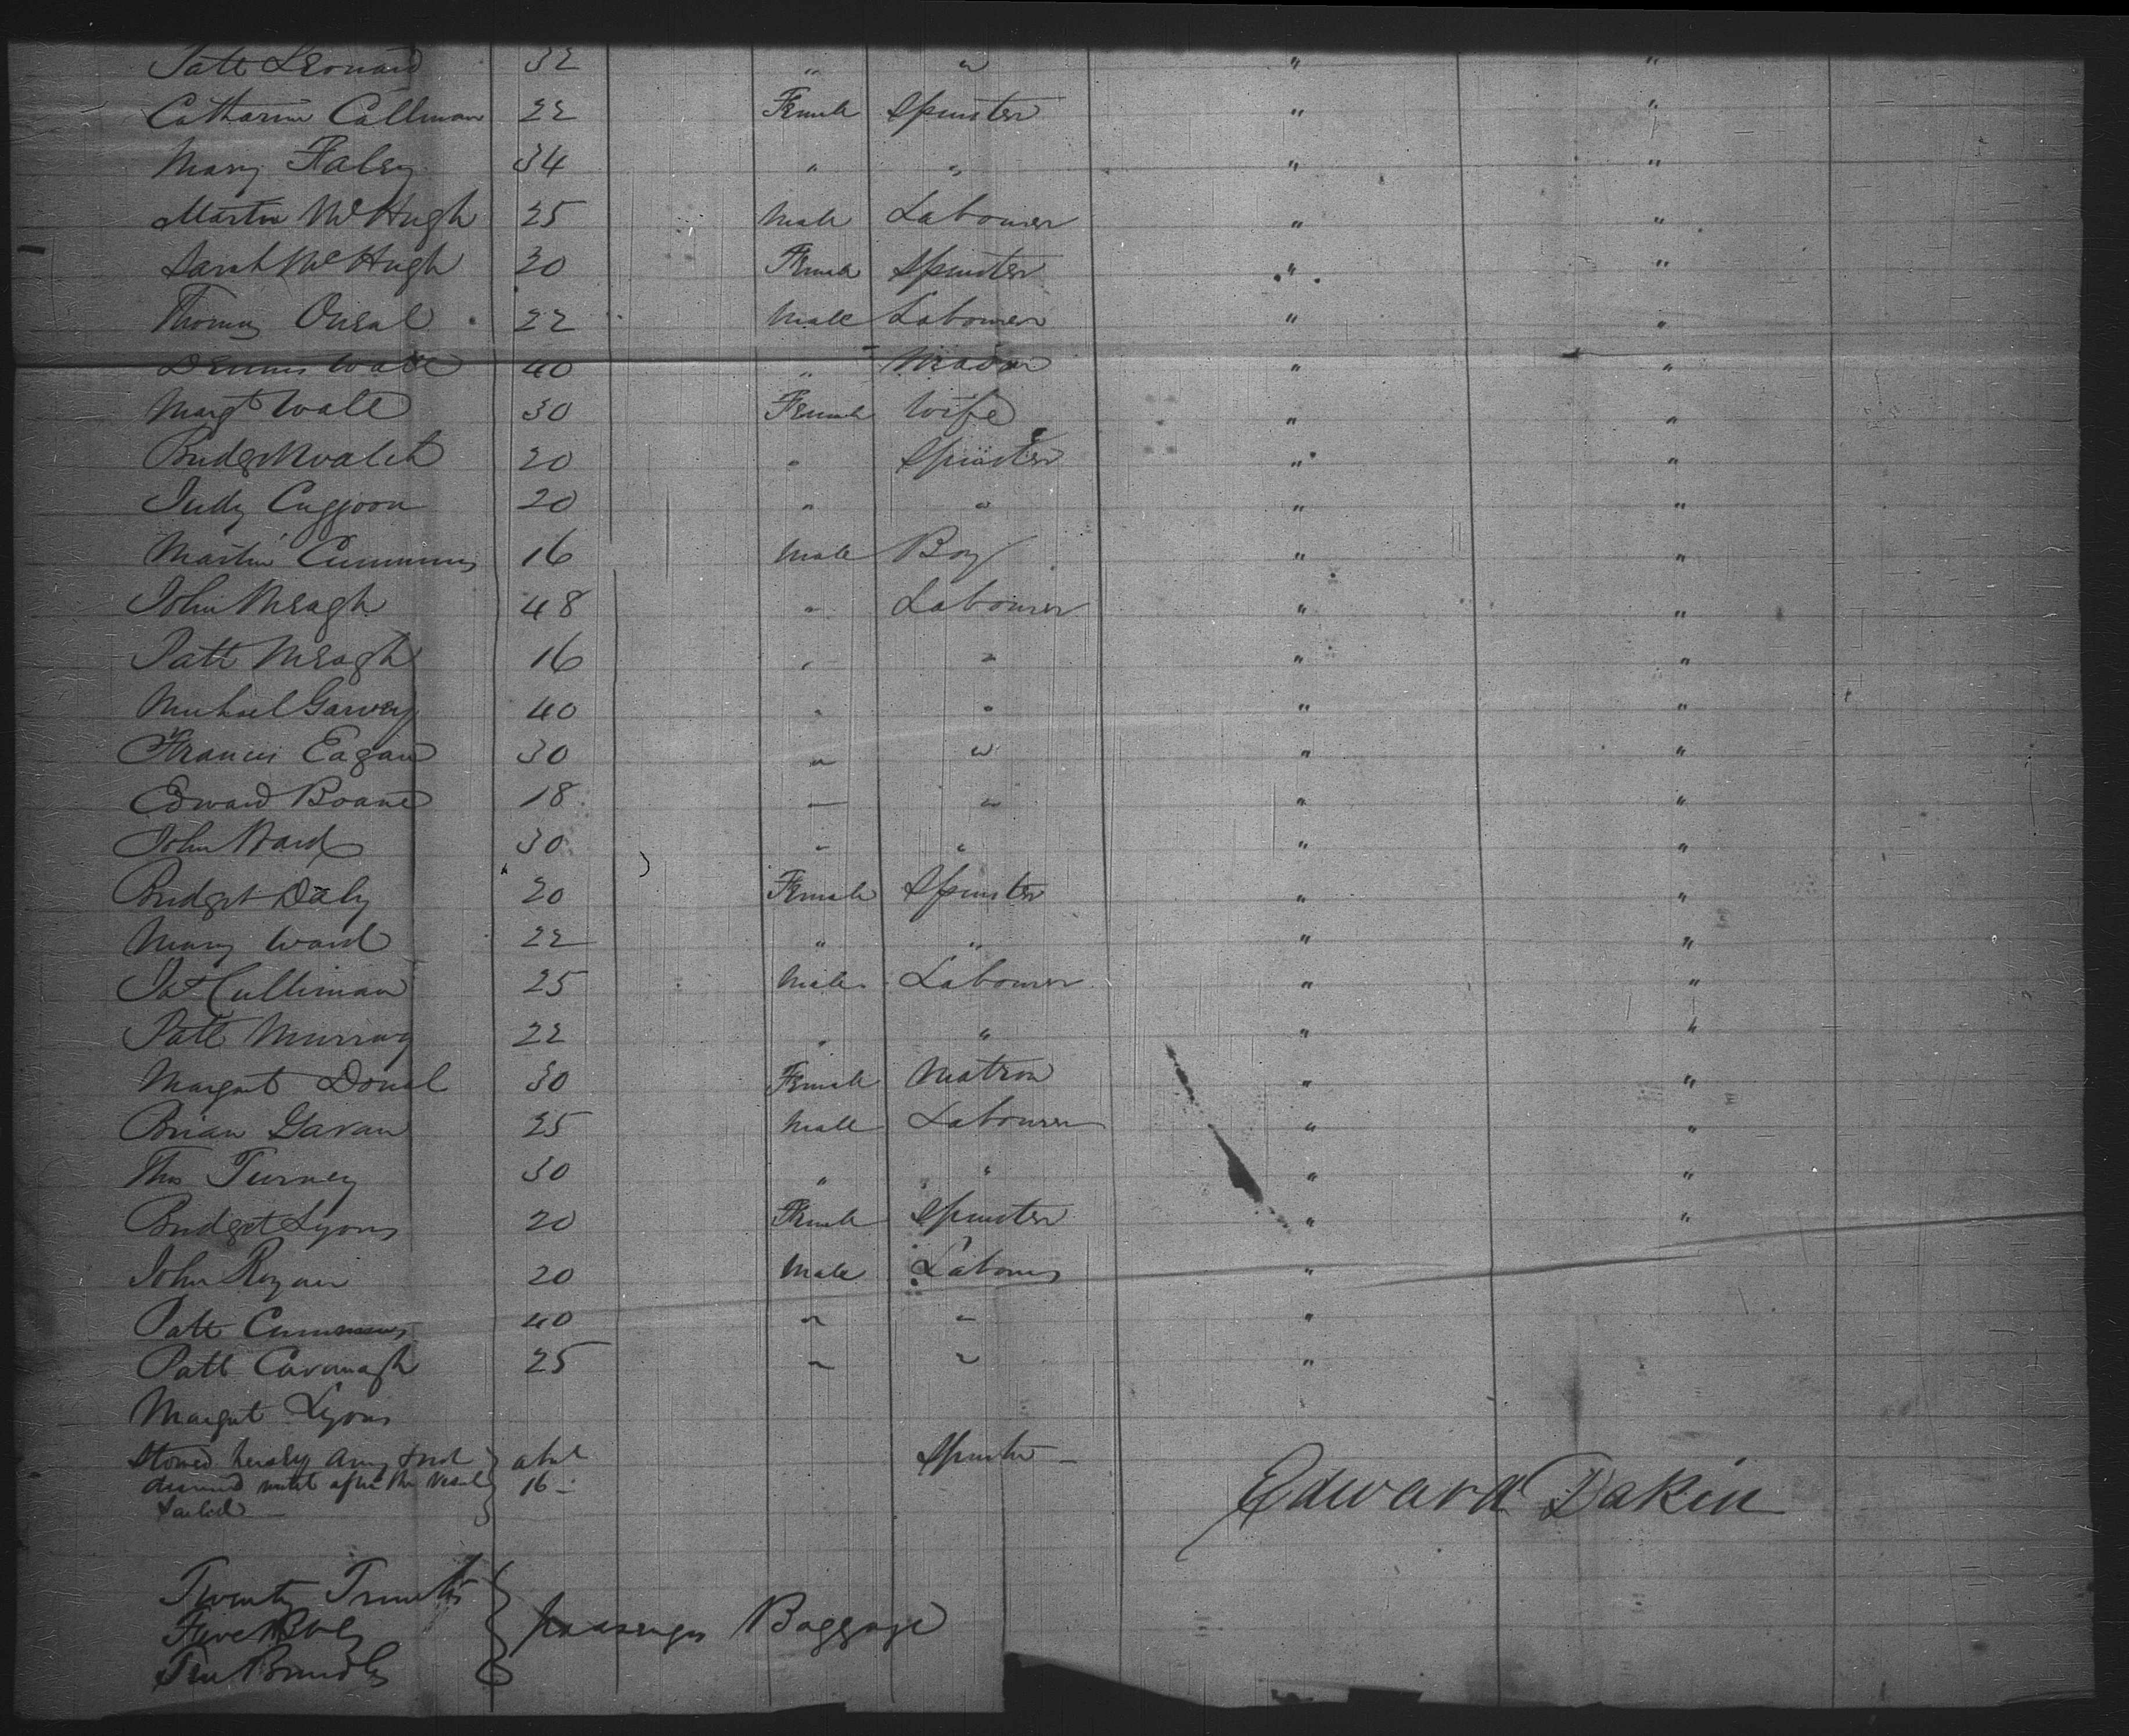 Patt Leonard 32 " " " "
Catharine Callinan 22 Female Spinster " "
Mary Haley 34 " " " "
Martin McHugh 25 Male Labourer " "
Sarah McHugh 20 Female Spinster " "
Thomas 22 Male Labourer " "
Dennis Wall 40 " " "
Margt Wall 30 Female Wife " "
Bridget Walsh 20 " Spinster " "
Judy 20 " " " "
Martin Cummins 16 Male Boy " "
John Meagh 48 " Labourer " "
Patt Meagh 16 " " " "
Michael Garvey 40 " " " "
Francis Eagan 30 " " " "
Edward Boane 18 " " " "
John Ward 30 " " " "
Bridget Daly 20 Female Spinster " "
Mary Ward 22 " " " "
Pat Cullinan 25 Male Labourer " "
Patt Murray 22 " " " "
Margaret 30 Female Matron " "
Brian Gavan 25 Male Labourer " "
Thos Turney 30 " " " "
Bridget Lyons 20 Female Spinster " "
John 20 Male Labourer "
Patt Cummins 40 " " "
Patt Cavanagh 25 " " "
Margaret Lyons
Stowed herself away & not } abt Spinster -
discovered until after the vessel } 16 -
Sailed - }
Edward Dakin
Twenty Trunks }
Five Boxes } passengers Baggage
Ten Bundles }